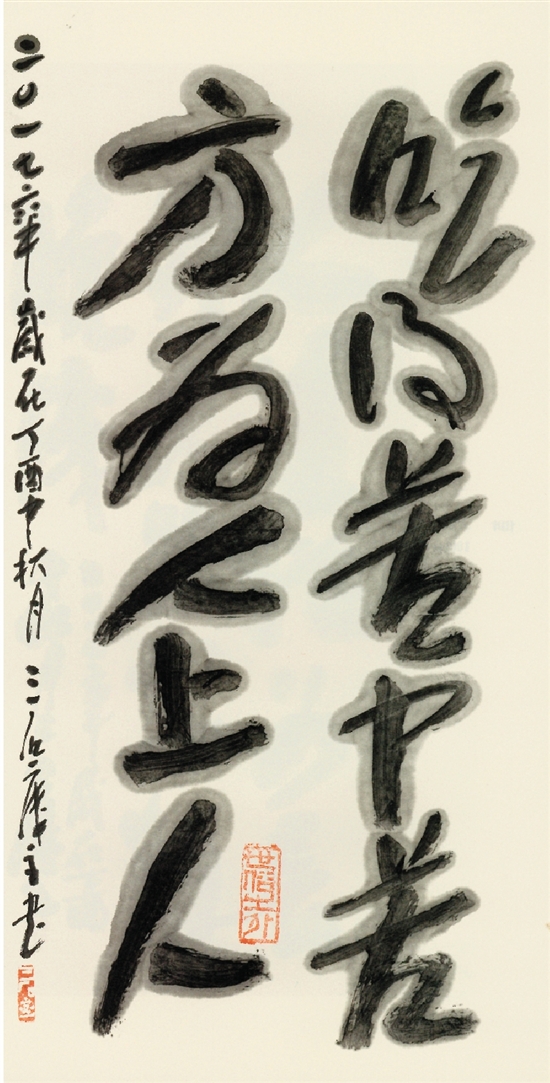 吃得苦中苦
方为人上人
二0一七年歲在丁酉中秋月 三石主书